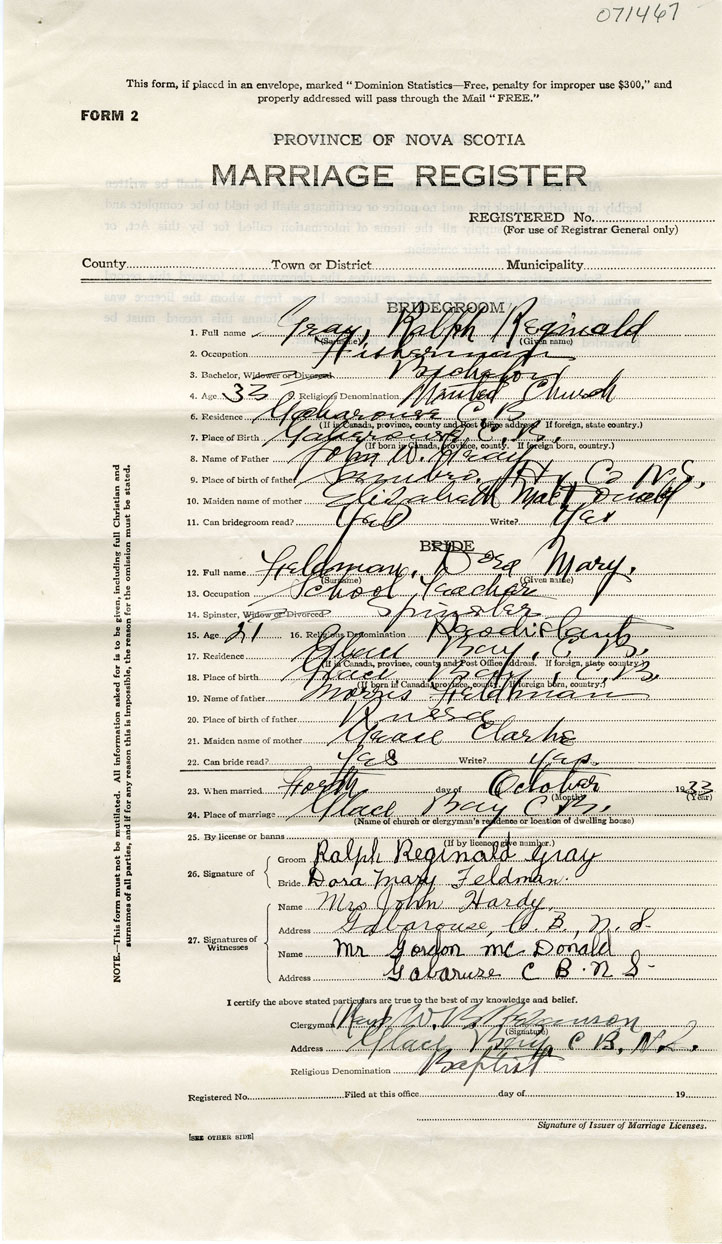 071467
This form, if placed in an envelope, marked "Dominion Statistics—Free, penalty for improper use $300," and
properly addressed will pass through the Mail "FREE."
FORM 2
PROVINCE OF NOVA SCOTIA
MARRIAGE REGISTER
REGISTERED No.
(For use of Registrar General only)
County Town or District Municipality
BRIDEGROOM
1. Full name Gray, Ralph Reginald
(Surname) (Given name)
2. Occupation Fisherman
3. Bachelor, Widower or Divorced Bachelor
4. Age 33 Religious Denomination United Church
6. Residence Gabarouse C B
(If in Canada, province, county and Post Office address. If foreign, state country.)
7. Place of Birth Gabarouse, C. B.,
(If born in Canada, province, county. If foreign born, country.)
8. Name of Father John W. Gray
9. Place of birth of father Hx Co N.S.
10. Maiden name of mother Elizabeth MacDonald
11. Can bridegroom read? Yes Write? Yes
BRIDE
12. Full name Feldman, Dora Mary,
(Surname) (Given name)
13. Occupation School Teacher
14. Spinster, Widow or Divorced Spinster
15. Age 21 16. Religious Denomination
17. Residence Glace Bay, C B,
(If in Canada, province, county and Post Office address. If foreign, state country.)
18. Place of birth Glace Bay, C B,
(If born in Canada, province, county. If foreign born, country.)
19. Name of father Morris Feldman
20. Place of birth of father Russia
21. Maiden name of mother Grace Clarke
22. Can bride read? Yes Write? Yes
23. When married day of October 1933
(Month) (Year)
24. Place of marriage Glace Bay C B.
(Name of church or clergyman's residence or location of dwelling house)
25. By license or banns
(If by licence give number.)
26. Signature of
Groom Ralph Reginald Gray
Bride Dora Mary Feldman.
27. Signatures of Witnesses
Name Mrs John Hardy
Address Gabarouse, C. B, N. S-
Name Mr Gordon McDonald
Address Gabaruse C B. N S-
I certify the above stated particulars are true to the best of my knowledge and belief.
Clergyman W. B.
(Signature)
Address Glace Bay, C B, N.S.
Religious Denomination Baptist
Registered No. Filed at this office day of 19
Signature of Issuer of Marriage Licenses.
[SEE OTHER SIDE]
NOTE.—This form must not be mutilated. All information asked for is to be given, including full Christian and
surnames of all parties, and if for any reason this is impossible, the reason for the omission must be stated.